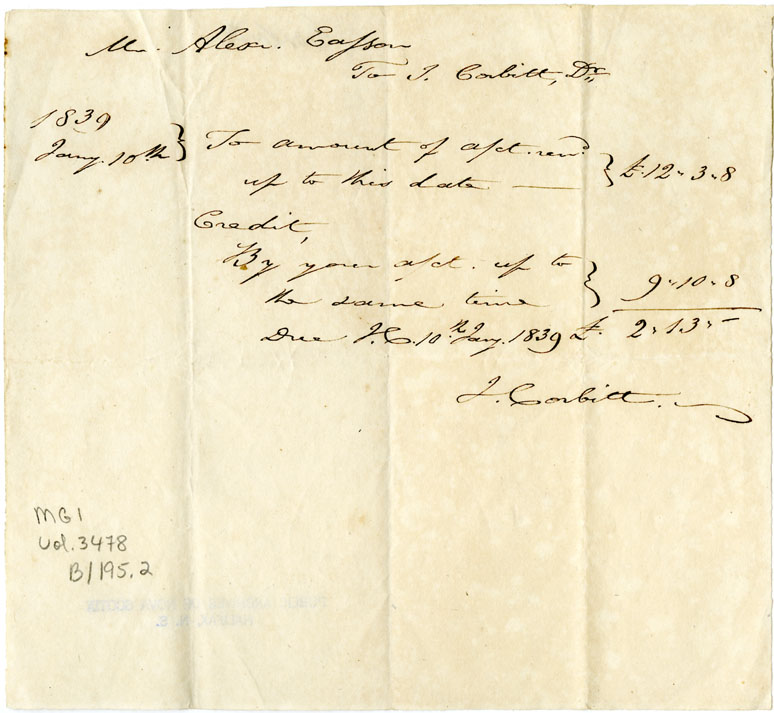 Mr. Alexr. Easson
To J. Corbitt, Dr.
1839
Jany. 10th } To amount of a/ct. rend.
up to this date — } £.12"3"8
Credit,
By your a/ct. up to
the same time } 9"10"8
Due J.C. 10th Jany. 1839 £. 2"13"–
J. Corbitt.
MG1
Vol. 3478
B/195.2
PUBLIC ARCHIVES OF NOVA SCOTIA
HALIFAX, N. S.